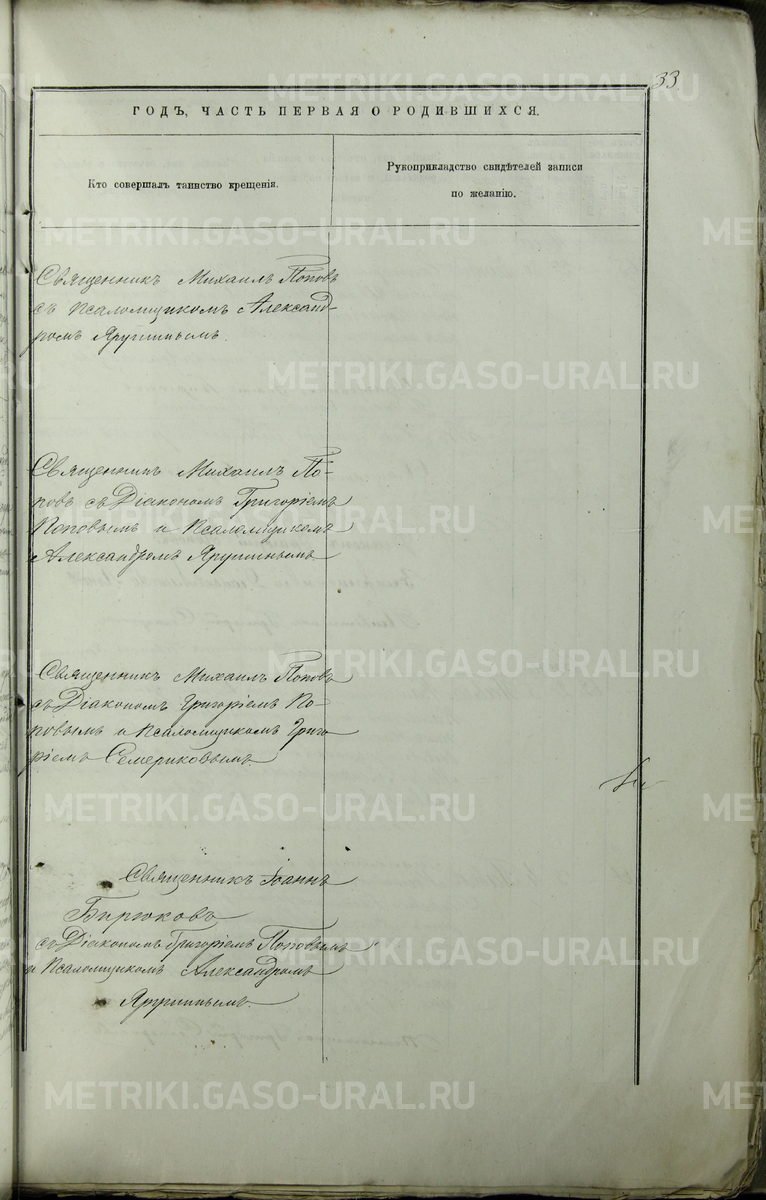 33.
ГОДЪ, ЧАСТЬ ПЕРВАЯ О РОДИВШИХСЯ.
Кто совершалъ таинство крещенія.
Рукоприкладство свидѣтелей записи
по желанію.
Священникъ Михаилъ Поповъ
съ псаломщикомъ Александ-
ромъ Яругинымъ.
Священникъ Михаилъ По-
повъ съ Діакономъ Григоріемъ
Поповымъ и псаломщикомъ
Александромъ Яругинымъ
Священникъ Михаилъ Поповъ
съ Діакономъ Григоріемъ По-
повымъ и псаломщикомъ Григо
ріемъ Семериковымъ.
Священникъ Іоаннъ
Бирюковъ
съ Діакономъ Григоріемъ Поповымъ
и псаломщикомъ Александромъ
Яругинымъ.
METRIKI.GASO-URAL.RU